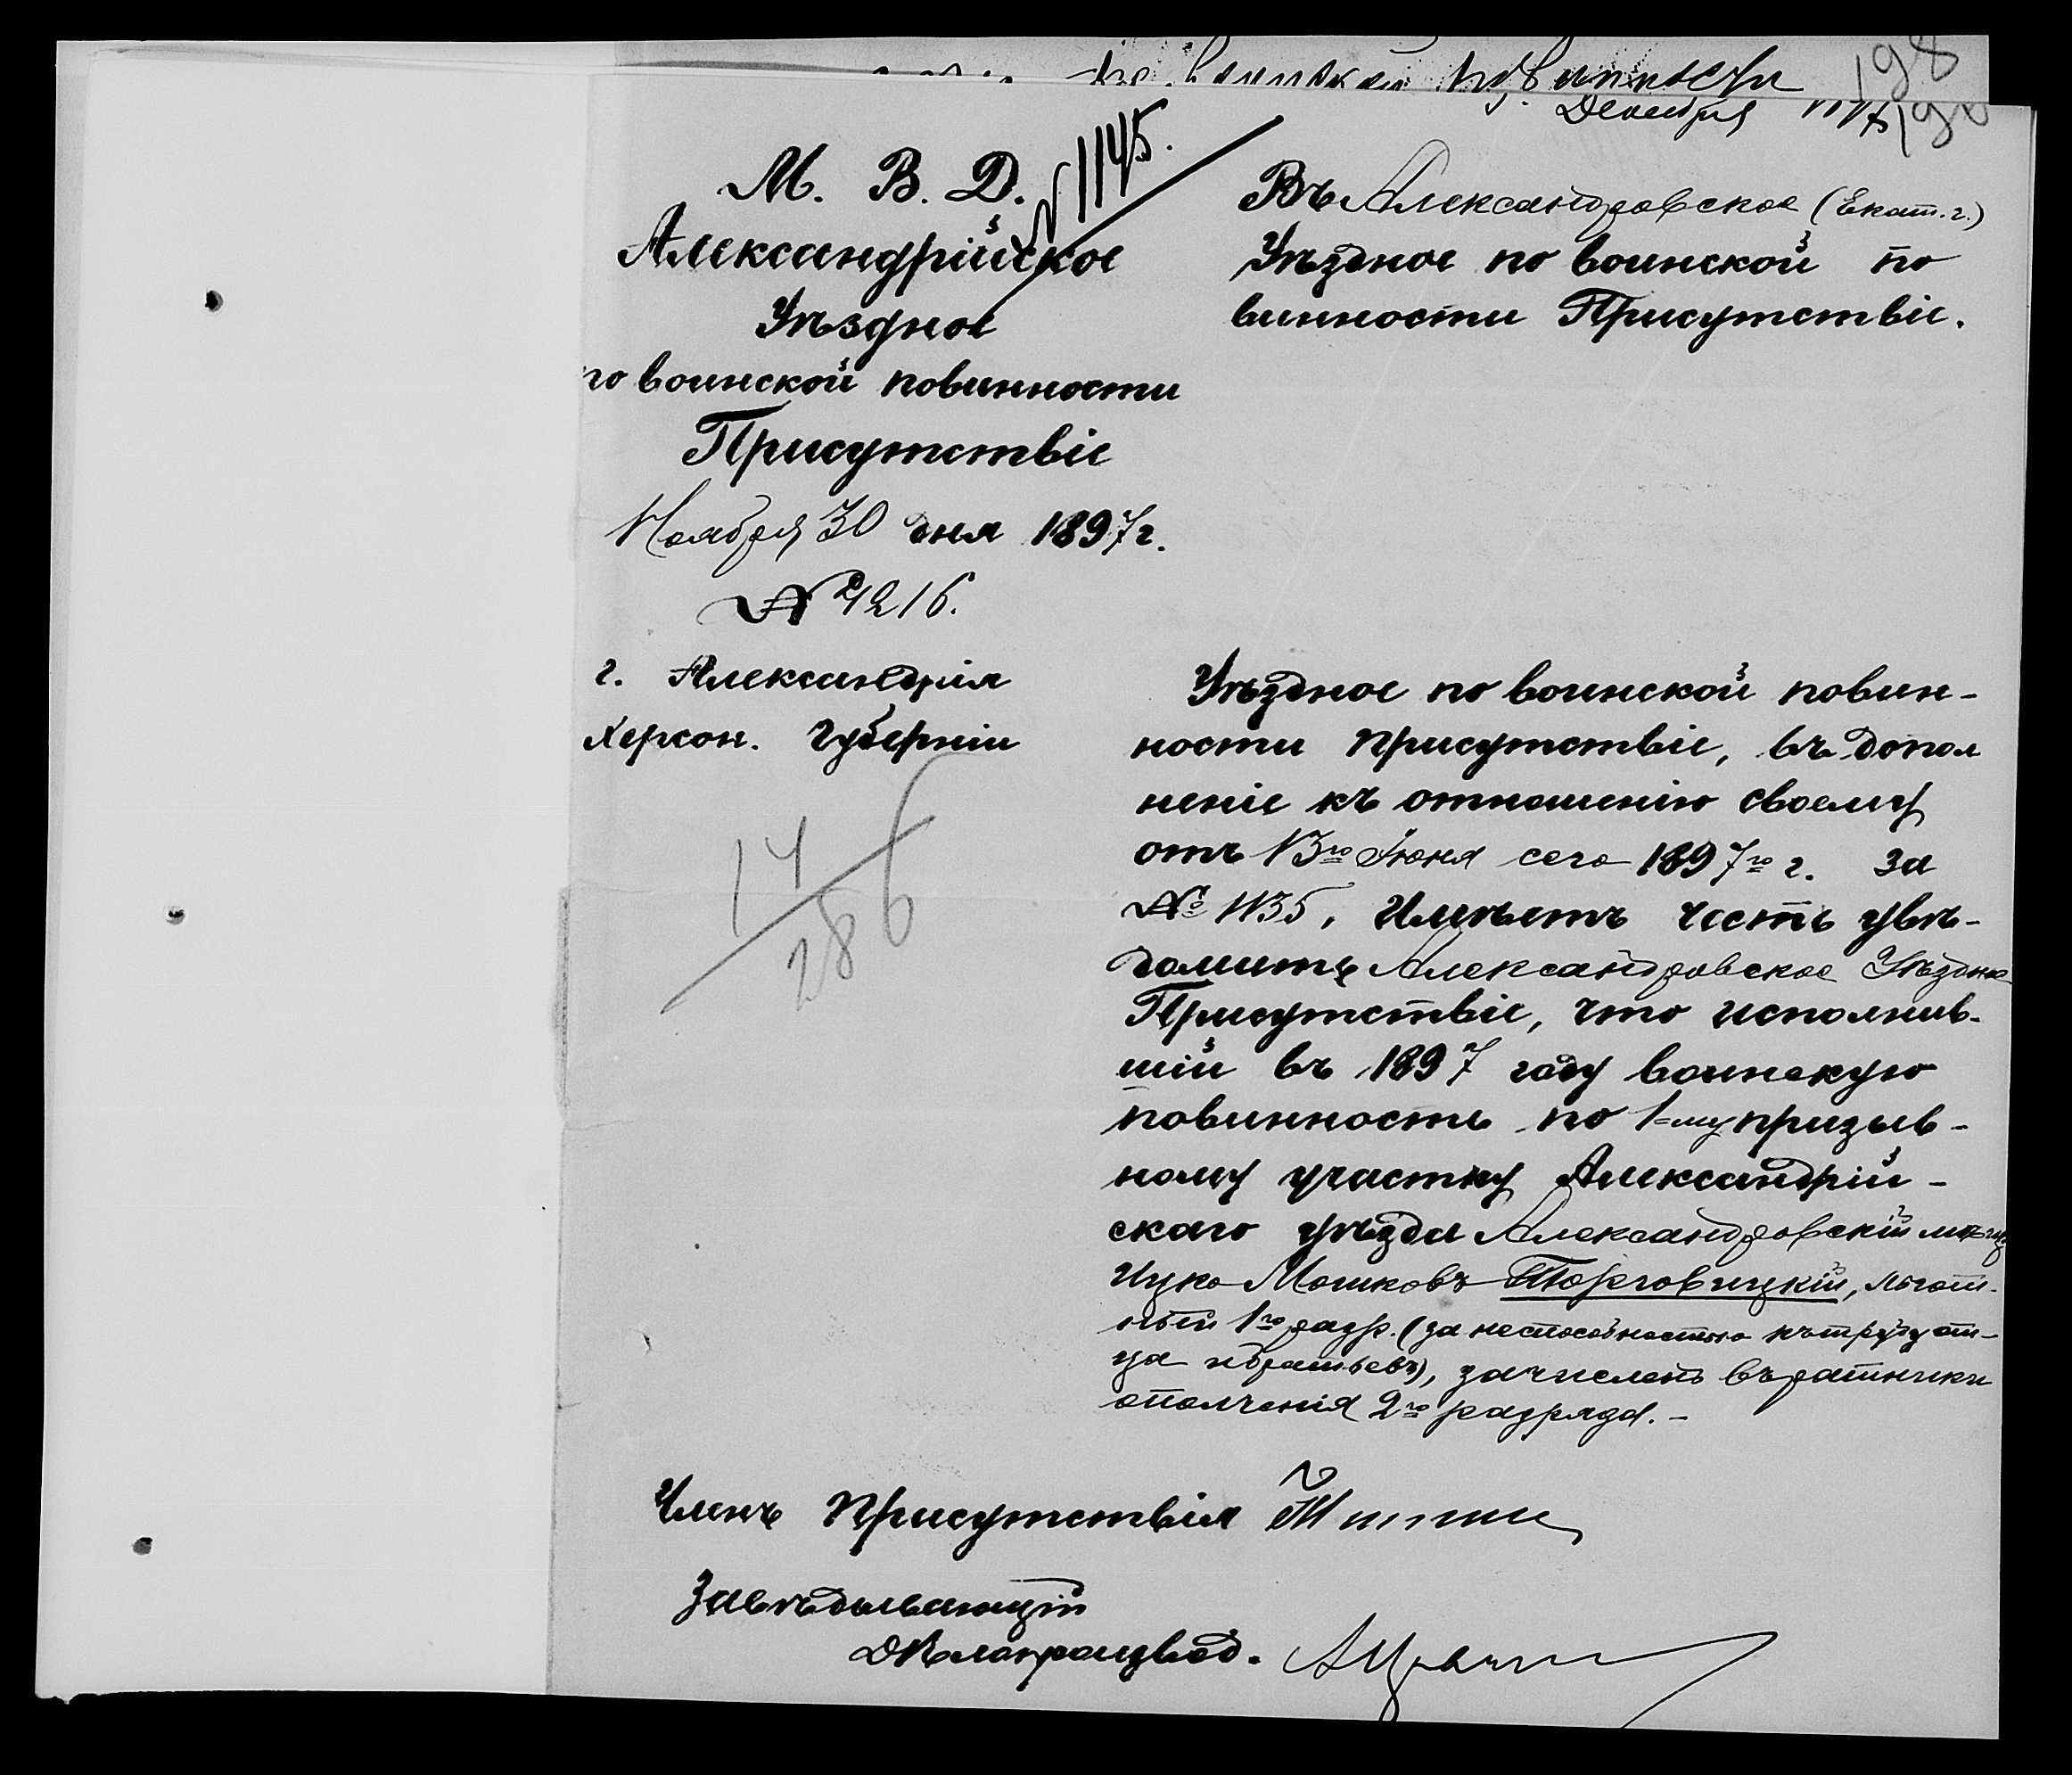 воинской повинности
198
Декабря
М. В. Д.
№ 1145.
Александрійское
Уѣздное
по воинской повинности
Присутствіе
Ноября 30 дня 1897 г.
№ 4216.
г. Александрія
Херсон. Губерніи
14
286
Въ Александровское (Екат. г.)
Уѣздное по воинской по
винности Присутствіе.
Уѣздное по воинской повин-
ности Присутствіе, въ допол
неніе къ отношенію своему
отъ 13го Іюня сего 1897го г. за
№ 1135, Имѣетъ честь увѣ-
домить Александровское Уѣздное
Присутствіе, что исполнив-
шій въ 1897 году воинскую
повинность по 1-му призыв-
ному участку Александрій-
скаго уѣзда Александровскій мѣщ.
Ицко Мошковъ Торговицкій, льгот-
ный 1го разр. (за неспособностью къ труду от-
ца и братьевъ), зачисленъ въ ратники
ополченія 2го разряда. -
Членъ Присутствія
Завѣдывающій
Дѣлопроизвод.